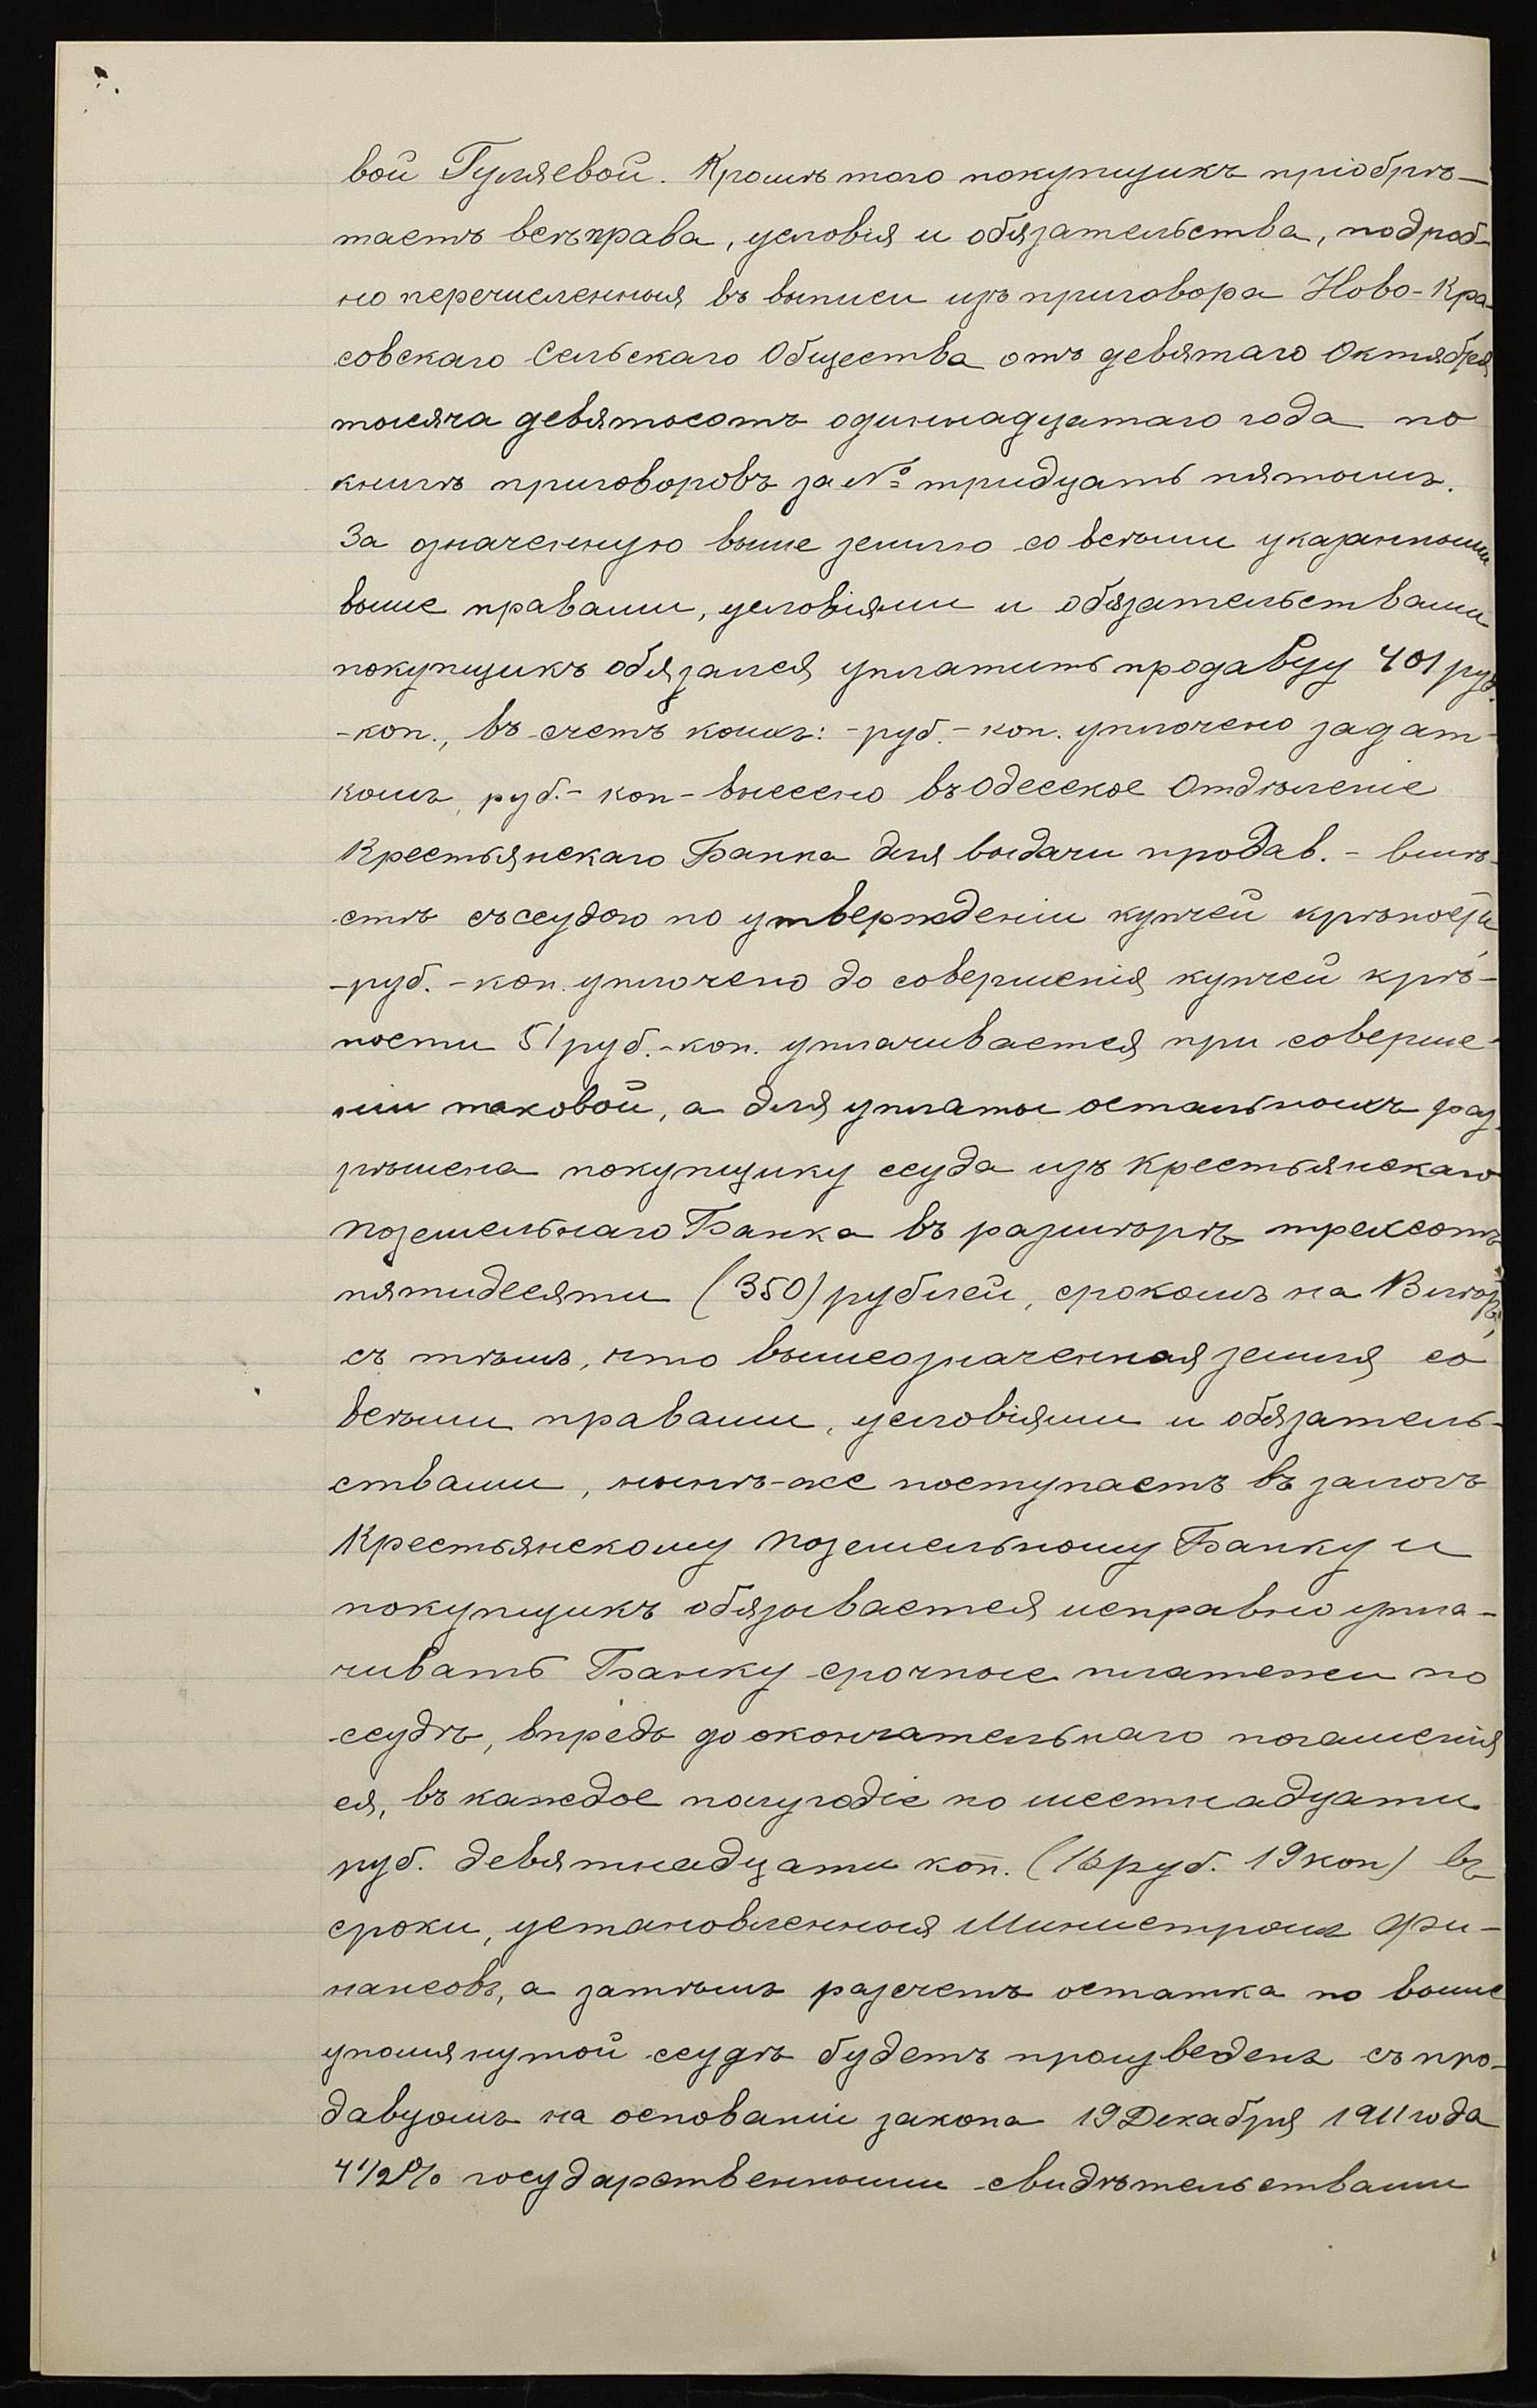 вой Гуляевой. Кромѣ того покупщикъ пріобрѣ-
таетъ всѣ права, условія и обязательства, подроб-
но перечисленныя въ выписи изъ приговора Ново-Кра-
совскаго Сельскаго Общества отъ девятаго Октября
тысяча девятьсотъ одиннадцатаго года по
книгѣ приговоровъ за № тридцать пятымъ.
За означенную выше землю со всѣми указанными
выше правами, условіями и обязательствами
покупщикъ обязался уплатить продавцу 401 руб.
-коп., въ счетъ коихъ: -руб.- коп. уплочено задат-
комъ, руб.- коп- внесено въ Одесское Отдѣленіе
Крестьянскаго Банка для выдачи продав.- вмѣ-
стѣ съ ссудою по утвержденіи купчей крѣпости,
-руб.-коп. уплочено до совершенія купчей крѣ-
пости 51 руб.-коп. уплачивается при соверше-
ніи таковой, а для уплаты остальныхъ раз-
рѣшена покупщику ссуда изъ Крестьянскаго
Поземельнаго Банка въ размѣрѣ трехсотъ
пятидесяти (350) рублей, срокомъ на
съ тѣмъ, что вышеозначенная земля со
всѣми правами, условіями и обязатель-
ствами, нынѣ-же поступаетъ въ залогъ
Крестьянскому Поземельному Банку и
покупщикъ обязывается исправно упла-
чивать Банку срочные платежи по
ссудѣ, впредь до окончательнаго погашенія
ея, въ каждое полугодіе по шестнадцати
руб. девятнадцати коп. (16 руб. 19 коп) въ
сроки, установленныя Министромъ Фи-
нансовъ, а затѣмъ разсчетъ остатка по выше
упомянутой ссудѣ будетъ произведенъ съ про-
давцомъ на основаніи закона 19 Декабря 1911 года
4 1/2 % государственными свидѣтельствами